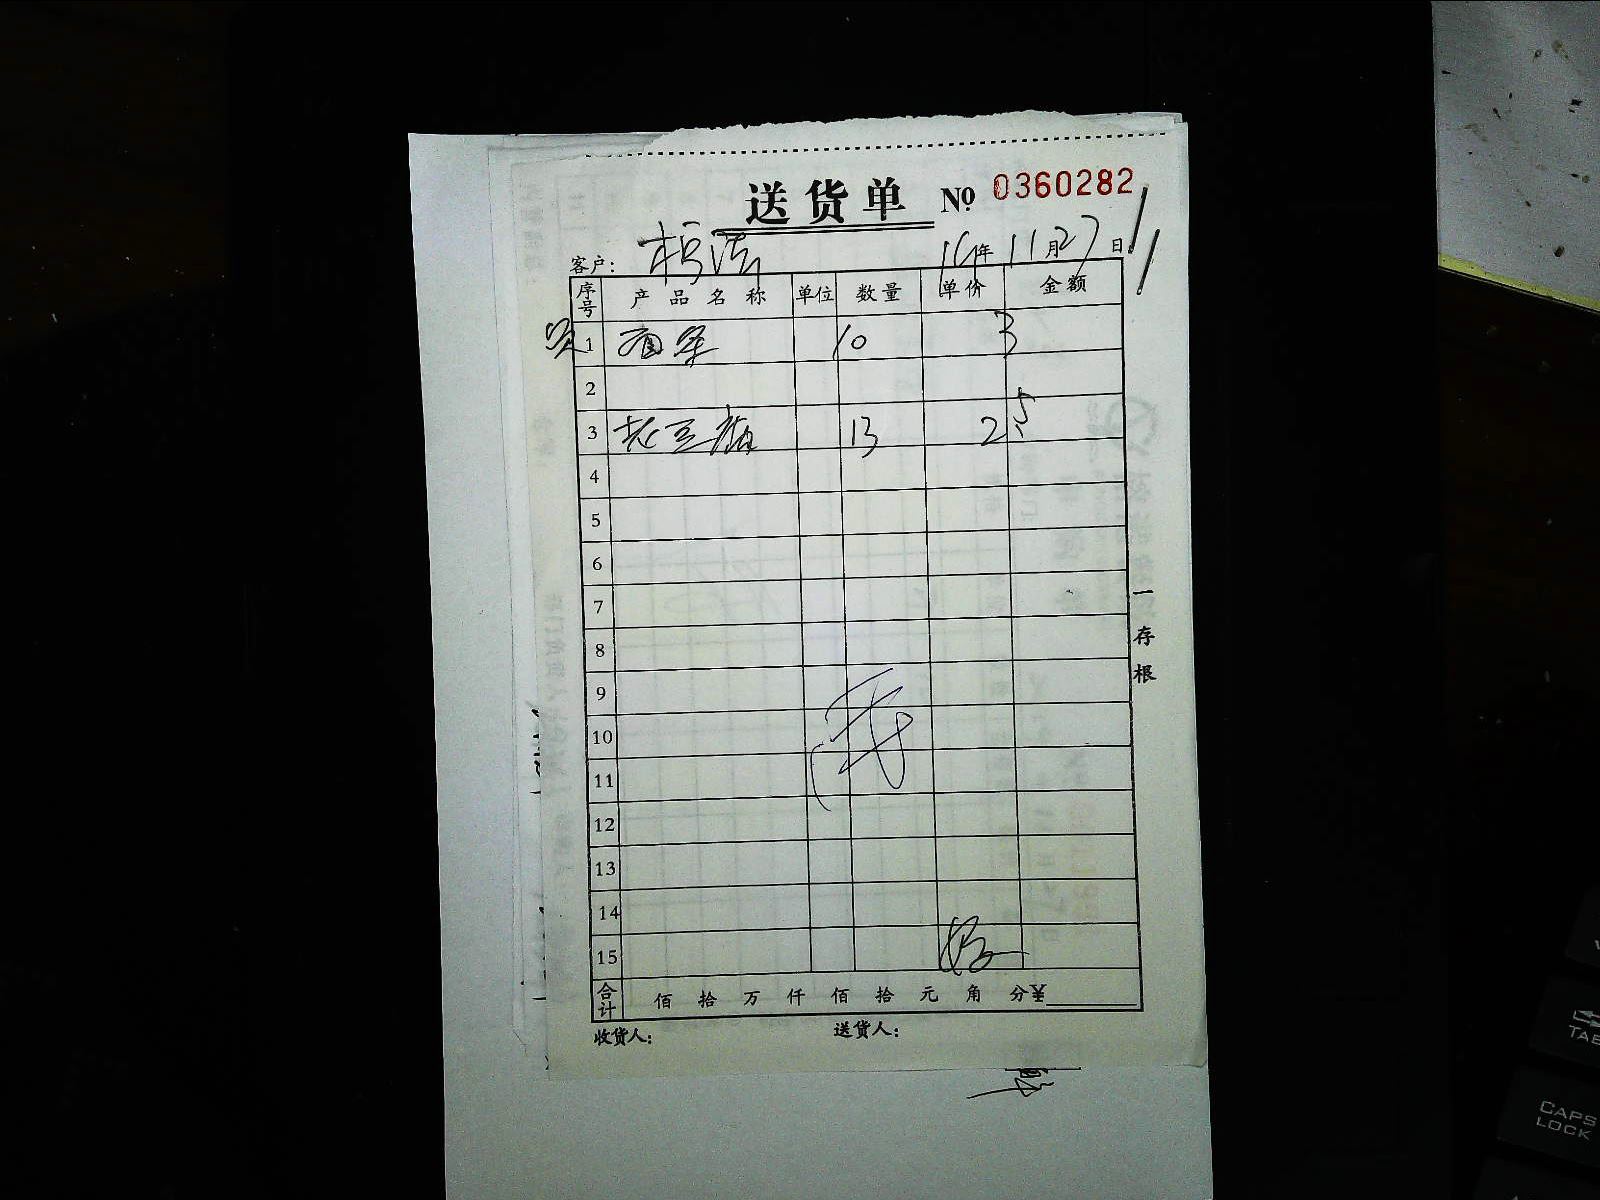 送货单 № 0360282
客户： 16年11月27日
序号 产品名称 单位 数量 单价 金额
1 面条 10 3
2
3 老豆腐 13 2.5
4
5
6
7
8
9
10
11
12
13
14
15
合计 佰 拾 万 仟 佰 拾 元 角 分 ¥
收货人： 送货人：
一存根
TAB
CAPS
LOCK